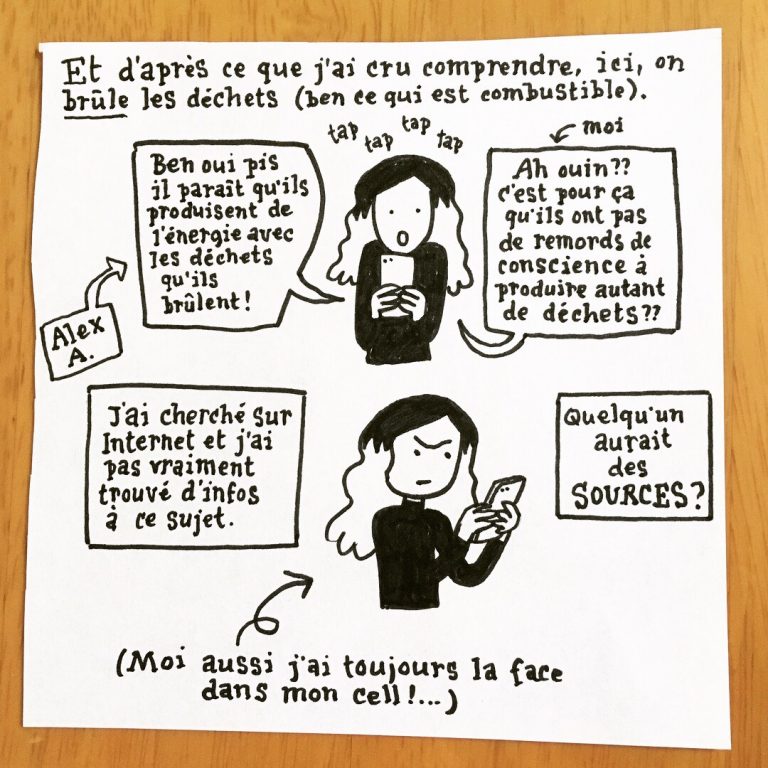 Et d'après ce que j'ai cru comprendre, ici, on
brûle les déchets (ben ce qui est combustible).
tap
tap
tap
tap
moi
Ben oui pis
il paraît qu'ils
produisent de
l'énergie avec
les déchets
qu'ils
brûlent!
Alex
A.
Ah ouin??
c'est pour ça
qu'ils ont pas
de remords de
conscience à
produire autant
de déchets??
J'ai cherché sur
Internet et j'ai
pas vraiment
trouvé d'infos
à ce sujet.
Quelqu'un
aurait
des
SOURCES?
(Moi aussi j'ai toujours la face
dans mon cell!...)